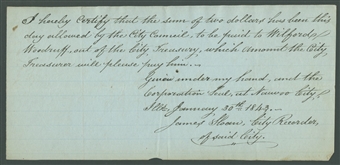 I hereby Certify that the sum of two dollars has been this
day allowed by the City Council, to be paid to Wilford
Woodruff, out of the City Treasury, which amount the City
Treasurer will please pay him.—
Given under my hand, and the
Corporation Seal, at Nauvoo City,
Ills. January 30th 1843.—
James Sloan, City Recorder,
of said City.